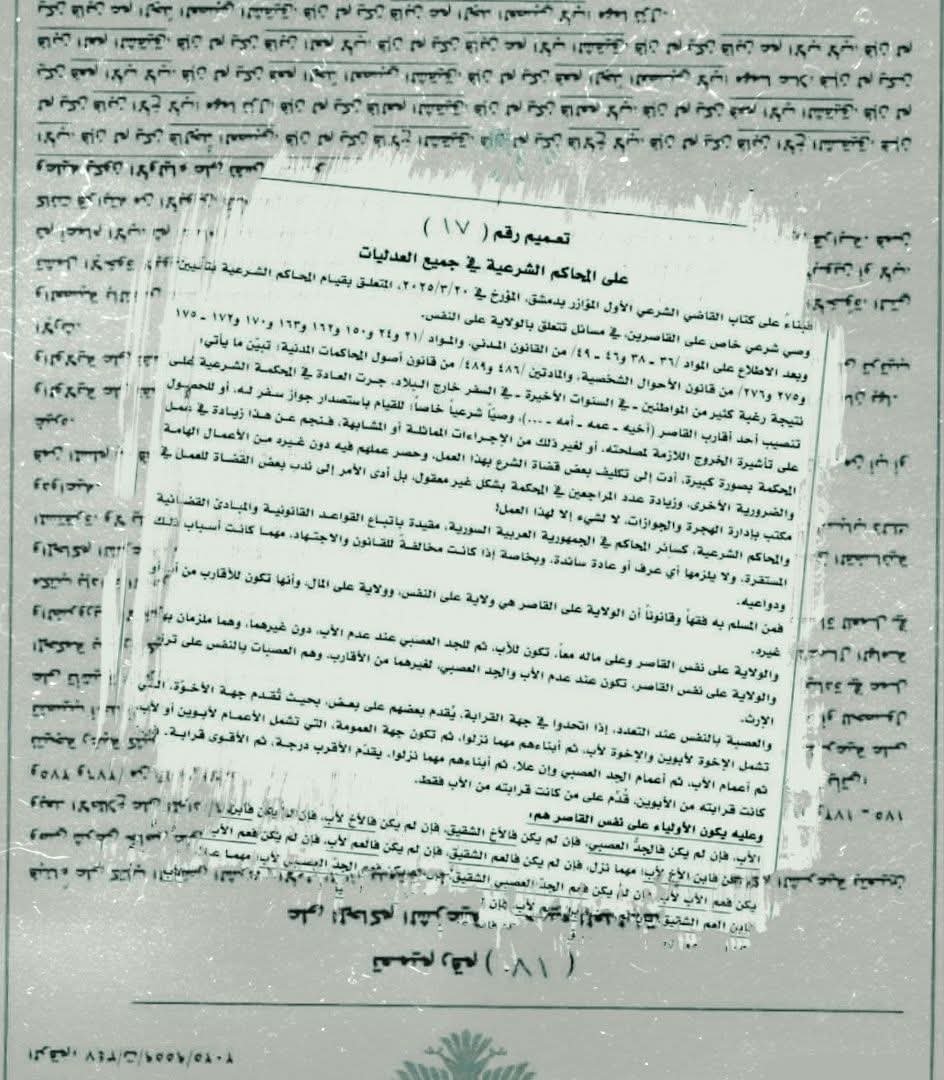 تعميم رقم ( ١٧ )
على المحاكم الشرعية في جميع العدليات
بناءً على كتاب القاضي الشرعي الأول المؤازر بدمشق، المؤرخ في ٢٠٢٥/٣/٢٠، المتعلق بقيام المحاكم الشرعية بتعيين
وصي شرعي خاص على القاصرين، في مسائل تتعلق بالولاية على النفس.
وبعد الاطلاع على المواد /٣٦ ـ ٣٨ و٤٦ ـ ٤٩/ من القانون المدني، والمواد /٢١ و٢٤ و١٥٠ و١٦٢ و١٦٣ و١٧٠ و١٧٢ ـ ١٧٥
و٢٧٥ و٢٧٦/ من قانون الأحوال الشخصية، والمادتين /٤٨٦ و٤٨٩/ من قانون أصول المحاكمات المدنية؛ تبيّن ما يأتي؛
نتيجة رغبة كثير من المواطنين ـ في السنوات الأخيرة ـ في السفر خارج البلاد، جرت العادة في المحكمة الشرعية على
تنصيب أحد أقارب القاصر (أخيه ـ عمه ـ أمه ـ ...)، وصيّاً شرعياً خاصاً؛ للقيام باستصدار جواز سفر له، أو للحصول
على تأشيرة الخروج اللازمة لمصلحته، أو لغير ذلك من الإجراءات المماثلة أو المشابهة، فنجم عن هذا زيادة في عمل
المحكمة بصورة كبيرة، أدت إلى تكليف بعض قضاة الشرع بهذا العمل، وحصر عملهم فيه دون غيره من الأعمال الهامة
والضرورية الأخرى، وزيادة عدد المراجعين في المحكمة بشكل غير معقول، بل أدى الأمر إلى ندب بعض القضاة للعمل في
مكتب بإدارة الهجرة والجوازات، لا لشيء إلا لهذا العمل!
والمحاكم الشرعية، كسائر المحاكم في الجمهورية العربية السورية، مقيدة باتباع القواعد القانونية والمبادئ القضائية
المستقرة، ولا يلزمها أي عرف أو عادة سائدة، وبخاصة إذا كانت مخالفةً للقانون والاجتهاد، مهما كانت أسباب ذلك
ودواعيه.
فمن المسلم به فقهاً وقانوناً أن الولاية على القاصر هي ولاية على النفس، وولاية على المال، وأنها تكون للأقارب من أب أو
غيره.
والولاية على نفس القاصر وعلى ماله معاً، تكون للأب، ثم للجد العصبي عند عدم الأب، دون غيرهما، وهما ملزمان بها.
والولاية على نفس القاصر، تكون عند عدم الأب والجد العصبي، لغيرهما من الأقارب، وهم العصبات بالنفس على ترتيب
الإرث.
والعصبة بالنفس عند التعدد، إذا اتحدوا في جهة القرابة، يُقدم بعضهم على بعض، بحيث تُقدم جهة الأخوّة، التي
تشمل الإخوة لأبوين والإخوة لأب، ثم أبناءهم مهما نزلوا، ثم تكون جهة العمومة، التي تشمل الأعمام لأبوين أو لأب،
ثم أعمام الأب، ثم أعمام الجد العصبي وإن علا، ثم أبناءهم مهما نزلوا، يقدّم الأقرب درجة، ثم الأقوى قرابة، فمن
كانت قرابته من الأبوين، قُدّم على من كانت قرابته من الأب فقط.
وعليه يكون الأولياء على نفس القاصر هم:
الأب، فإن لم يكن فالجدُّ العصبي، فإن لم يكن فالأخ الشقيق، فإن لم يكن فالأخ لأب، فإن لم يكن فابن
يكن فابن الأخ لأب؛ مهما نزل، فإن لم يكن فالعم الشقيق، فإن لم يكن فالعم لأب، فإن لم يكن فعم الأب
يكن فعم الأب لأب، فإن لم يكن فعم الجدّ العصبي الشقيق، الجدّ العصبي لأب؛ مهما علا
فابن العم الشقيق
الرقم: ٢٤٧/ت/٩٥٥٩/٢٠٢٥